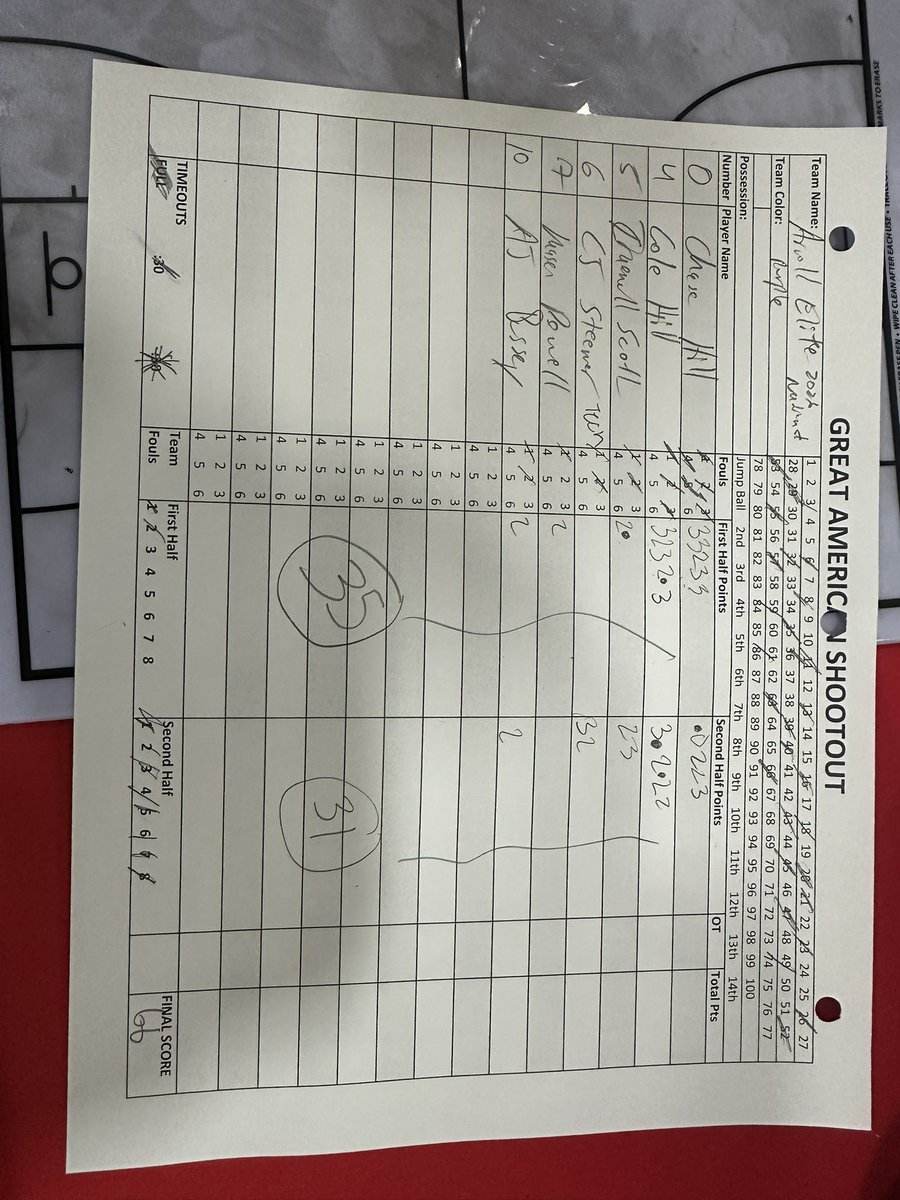 GREAT AMERICAN SHOOTOUT
Team Name: Elite
1 2 3 4 5 6 7 8 9 10 11 12 13 14 15 16 17 18 19 20 21 22 23 24 25 26 27
Team Color: Purple
28 29 30 31 32 33 34 35 36 37 38 39 40 41 42 43 44 45 46 47 48 49 50 51 52
53 54 55 56 57 58 59 60 61 62 63 64 65 66 67 68 69 70 71 72 73 74 75 76 77
78 79 80 81 82 83 84 85 86 87 88 89 90 91 92 93 94 95 96 97 98 99 100
Possession: Jump Ball 2nd 3rd 4th 5th 6th 7th 8th 9th 10th 11th 12th 13th 14th
Number Player Name Fouls First Half Points Second Half Points OT Total Pts
0 Chase Hill 1 2 3 33233 0223
4 5 6
4 Cole Hill 1 2 3 323203 30222
4 5 6
5 Scott 1 2 3 20 23
4 5 6
6 CJ 1 2 3 32
4 5 6
7 Mason Powell 1 2 3 2
4 5 6
10 AJ 1 2 3 2 2
4 5 6
1 2 3
4 5 6
1 2 3
4 5 6
1 2 3
4 5 6
1 2 3
4 5 6
1 2 3
4 5 6
35 31
1 2 3
4 5 6
1 2 3
4 5 6
1 2 3
4 5 6
TIMEOUTS Team First Half Second Half FINAL SCORE
FULL :30 Fouls 1 2 3 4 5 6 7 8 1 2 3 4 5 6 7 8 66
WIPE CLEAN AFTER EACH USE
MARKS TO ERASE